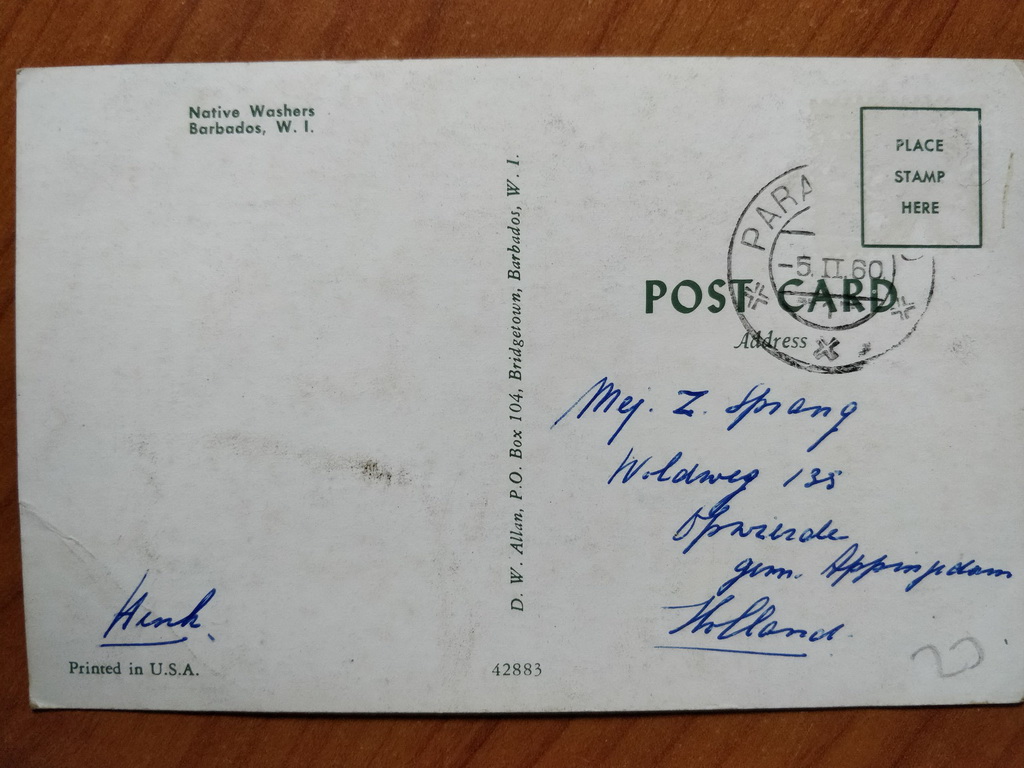 Native Washers
Barbados, W. I.
D. W. Allan, P.O. Box 104, Bridgetown, Barbados, W. I.
PLACE
STAMP
HERE
PARA
-5.II.60
POST CARD
Address
Mej. Z. Sprang
Woldweg 135
Opwierde
gem. Appingedam
Holland
Henk.
Printed in U.S.A.
42883
20